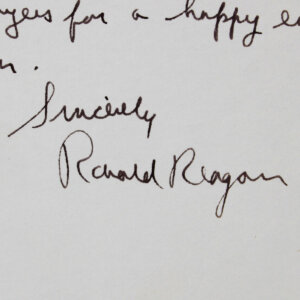 for a happy
Sincerely
Ronald Reagan